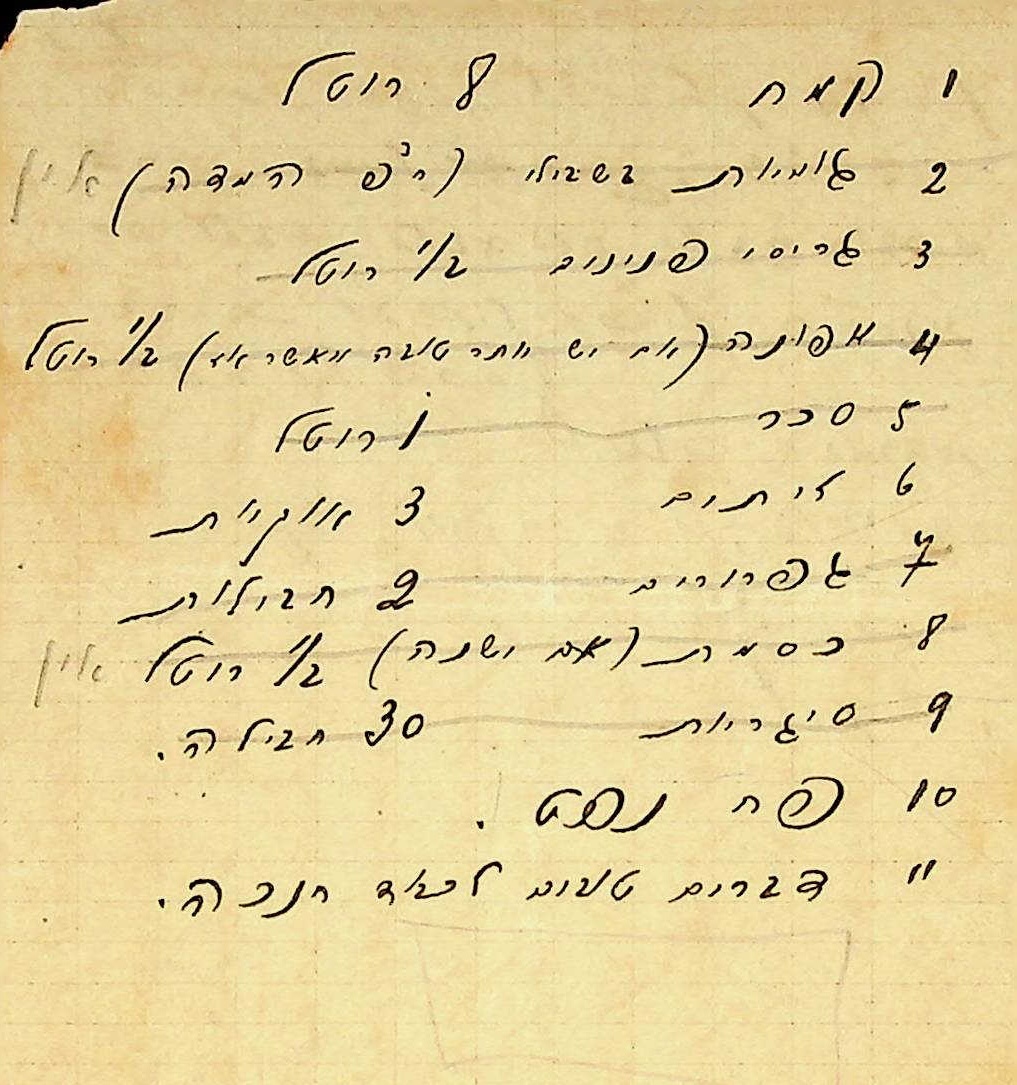 1 קמח 8 רוטל
2 גומיות בשבילי (ר'פ המדה) אין
3 גריסי פנינים 1/2 רוטל
4 אפונה (אם יש יותר טובה מאשר אז) 1/2 רוטל
5 סכר 1 רוטל
6 זיתים 3 אוקיות
7 גפרורים 2 חבילות
8 כסמת (אם ישנה) 1/2 רוטל אין
9 סיגריות 30 חבילה.
10 פח נפט.
11 דברים טובים לכבוד חנכה.